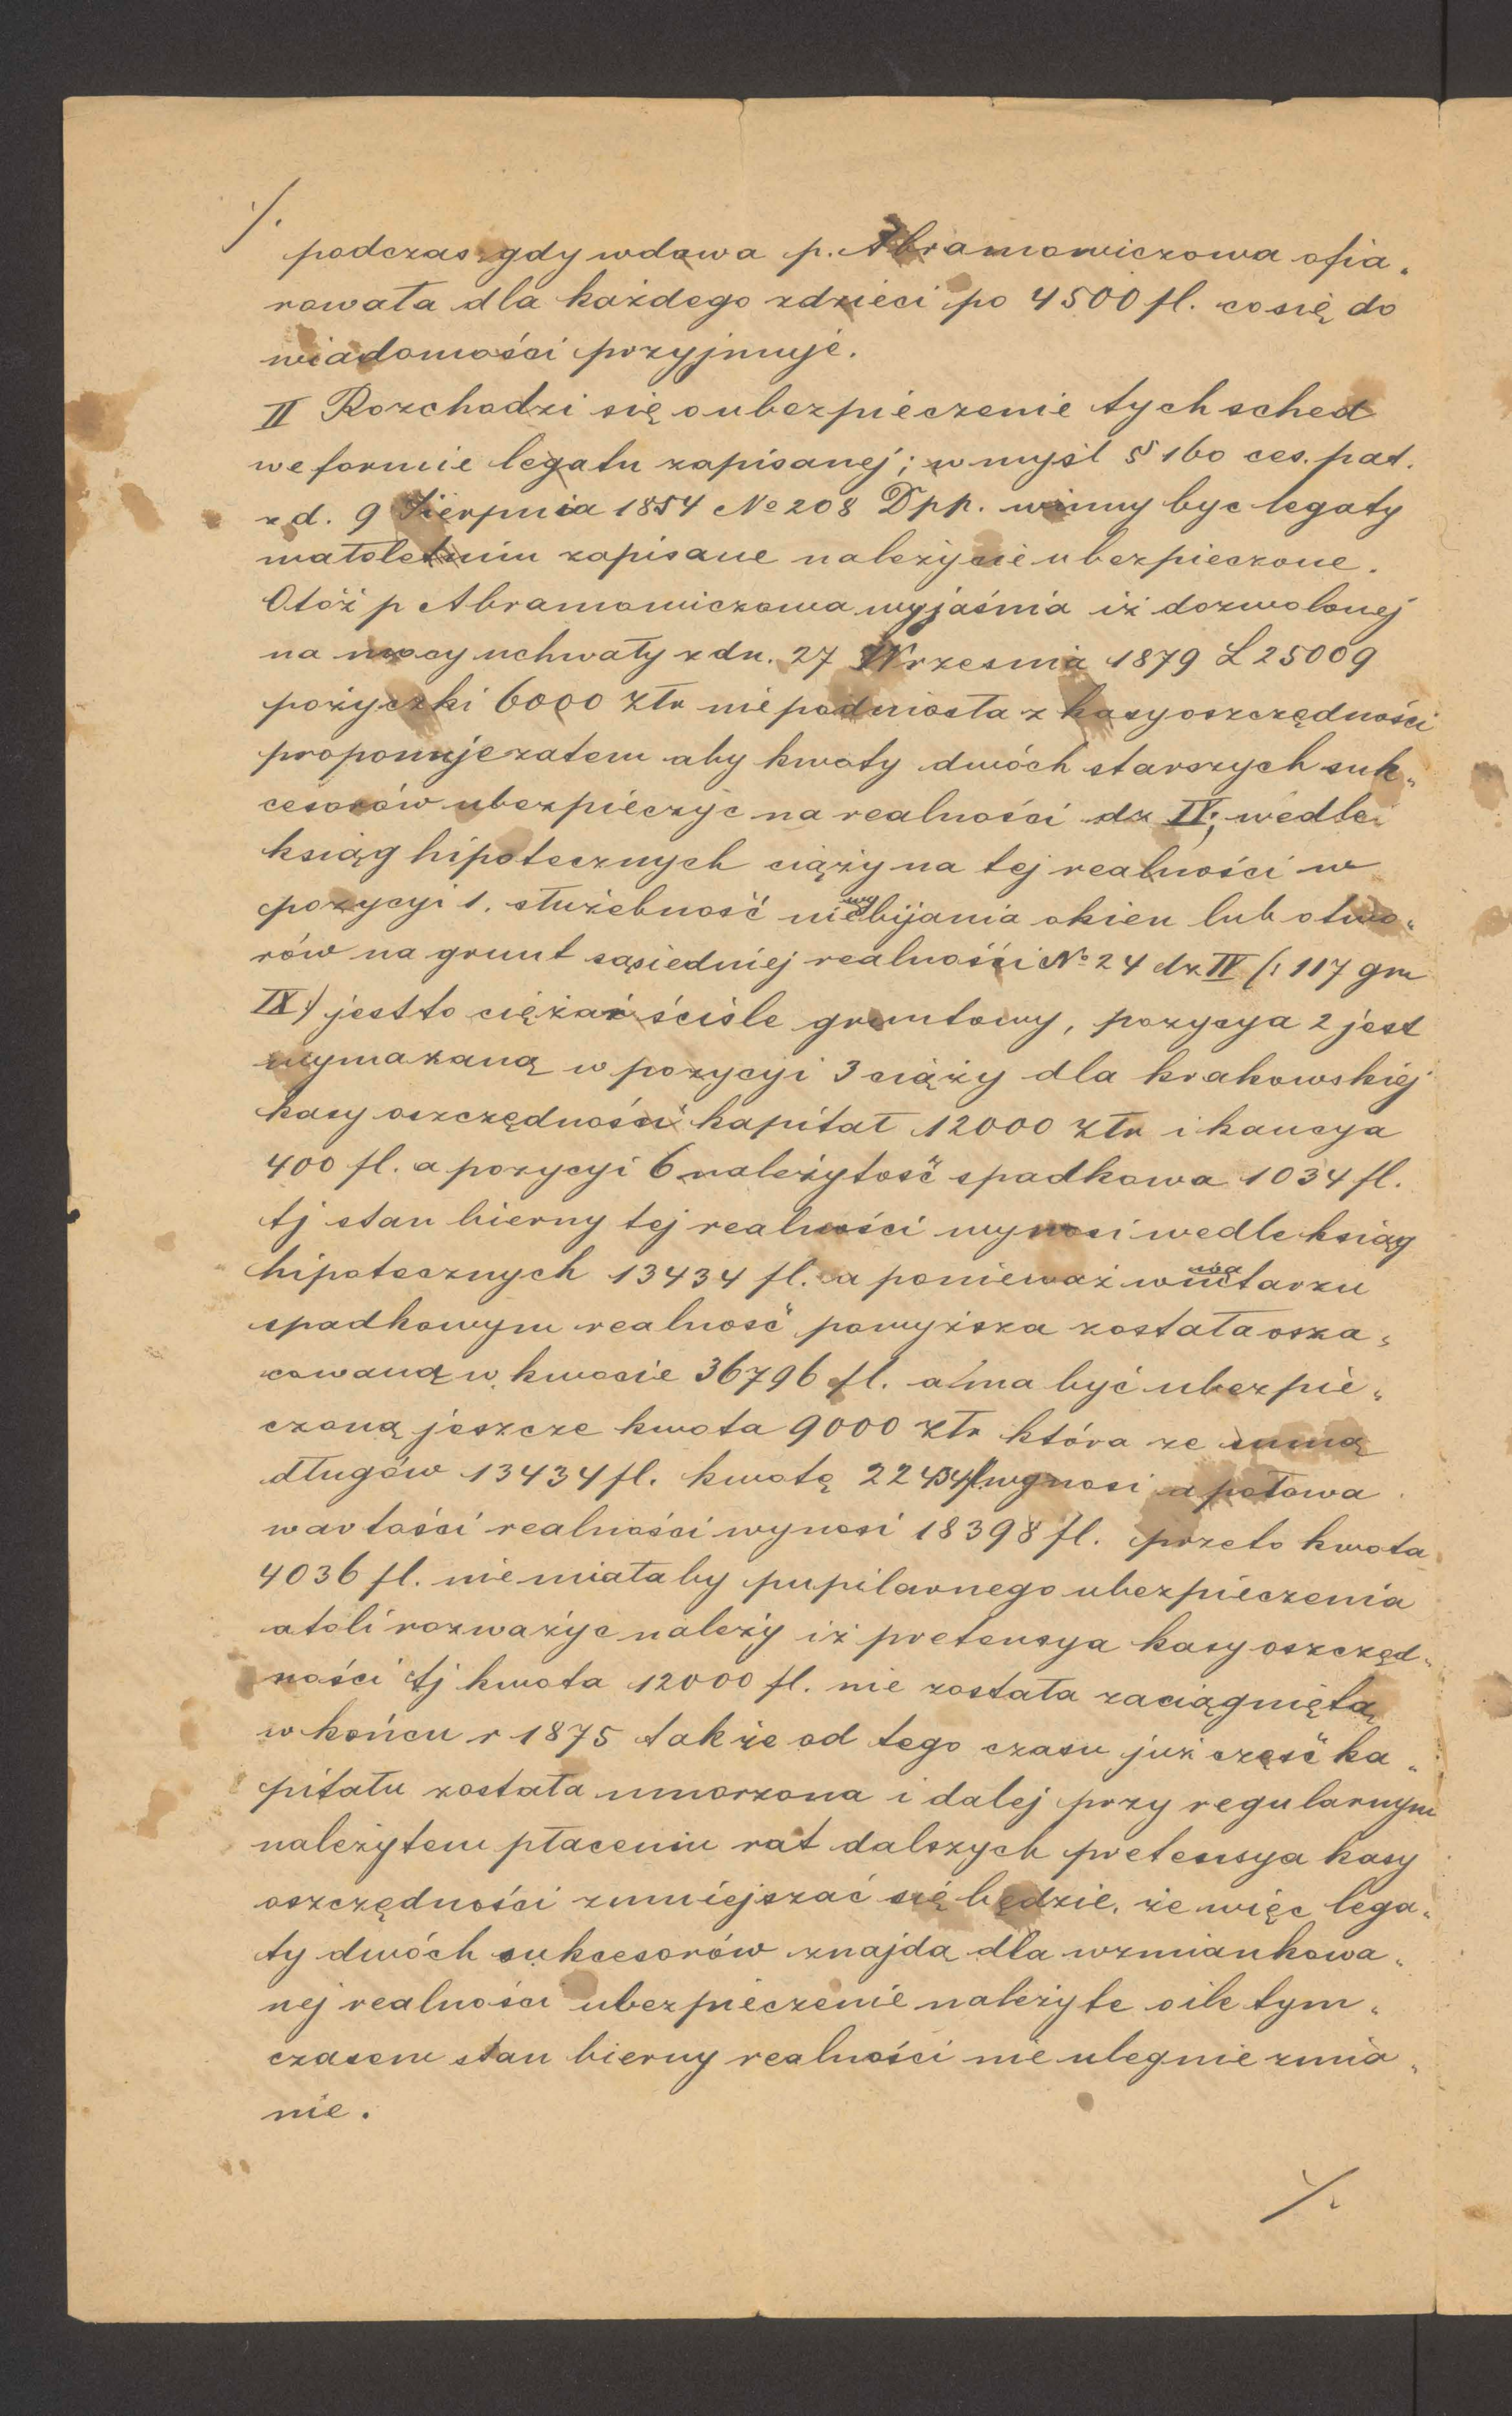 ·/.
podczas gdy wdowa p. Abramowiczowa ofia„
rowała dla każdego zdzieci po 4500 fl. co się do
wiadomości przyjmuje.
II Rozchodzi się o ubezpieczenie tych sched
we formie legatu zapisanej; w myśl § 160 ces. pat.
z d. 9 Sierpnia 1854 No 208 Dpp. winny byc legaty
małoletnim zapisane należycie ubezpieczone.
Otóż p Abramowiczowa wyjaśnia iż dozwolonej
na mocy uchwały z dn. 27 Wrzesnia 1879 L 25009
pożyczki 6000 złr nie podniosła z kasy oszczędności
proponuje zatem aby kwoty dwóch starszych suk„
cesorów ubezpieczyc na realności dz IV; wedle
ksiąg hipotecznych ciąży na tej realności w
pozycyi 1. służebność niewybijania okien lub otwo„
rów na grunt sąsiedniej realności No 24 dz IV /: 117 gm
IX :/ jestto ciężar ściśle gruntowy, pozycya 2 jest
wymazaną w pozycyi 3 ciąży dla krakowskiej
kasy oszczędności kapitał 12000 złr i kaucya
400 fl. a pozycyi 6 należytość spadkowa 1034 fl.
tj stan bierny tej realności wynosi wedle ksiąg
hipotecznych 13434 fl. a ponieważ w inwentarzu
spadkowym realność powyższa została osza„
cowaną w kwocie 36796 fl. a ma być ubezpie„
czoną jeszcze kwota 9000 złr która ze sumą
długów 13434 fl. kwotę 22434 fl. wynosi a połowa
wartości realności wynosi 18398 fl. przeto kwota
4036 fl. nie miałaby pupilarnego ubezpieczenia
atoli rozważyc należy iż pretensya kasy oszczęd„
ności tj kwota 12000 fl. nie została zaciągniętą
w końcu r 1875 tak że od tego czasu już część ka„
pitału została umorzona i dalej przy regularnym
należytem płaceniu rat dalszych pretensya kasy
oszczędności zmniejszać się będzie, że więc lega„
ty dwóch sukcesorów znajdą dla wzmiankowa„
nej realności ubezpieczenie należyte o ile tym„
czasem stan bierny realności nie ulegnie zmia„
nie.
·/.